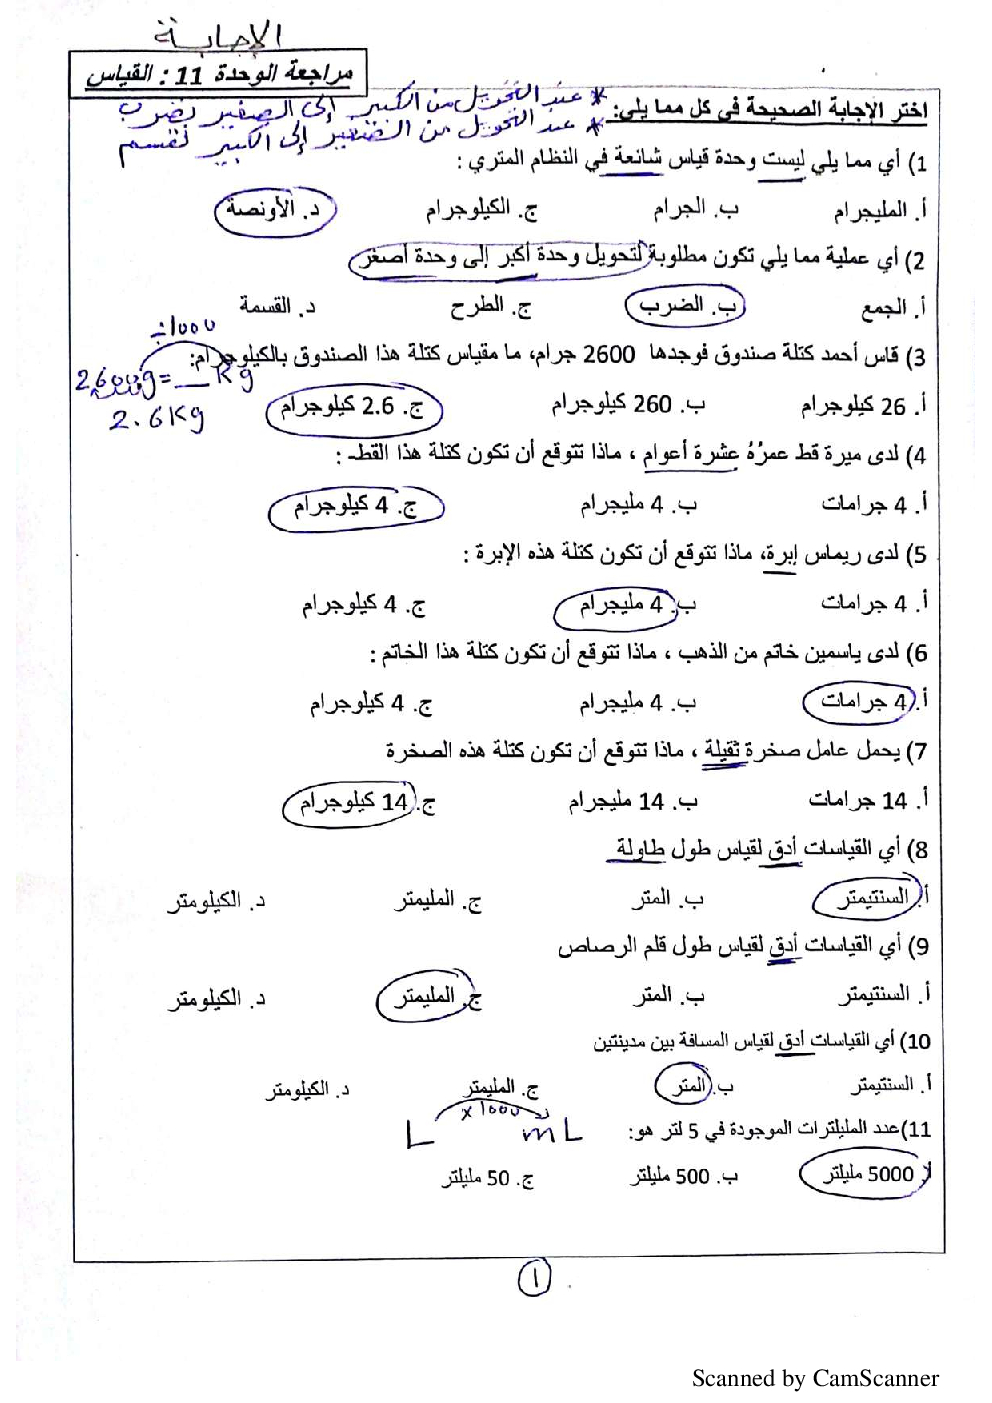 الإجابة
مراجعة الوحدة 11 : القياس
اختر الإجابة الصحيحة في كل مما يلي:
* عند التحويل من الكبير إلى الصغير نضرب
* عند التحويل من الصغير إلى الكبير نقسم
1) أي مما يلي ليست وحدة قياس شائعة في النظام المتري :
أ. المليجرام ب. الجرام ج. الكيلوجرام د. الأونصة
2) أي عملية مما يلي تكون مطلوبة لتحويل وحدة أكبر إلى وحدة أصغر
أ. الجمع ب. الضرب ج. الطرح د. القسمة
÷1000
3) قاس أحمد كتلة صندوق فوجدها 2600 جرام، ما مقياس كتلة هذا الصندوق بالكيلوجرام:
2600g=__Kg
أ. 26 كيلوجرام ب. 260 كيلوجرام ج. 2.6 كيلوجرام
2.6Kg
4) لدى ميرة قط عمرُهُ عشرة أعوام ، ماذا تتوقع أن تكون كتلة هذا القط :
أ. 4 جرامات ب. 4 مليجرام ج. 4 كيلوجرام
5) لدى ريماس إبرة، ماذا تتوقع أن تكون كتلة هذه الإبرة :
أ. 4 جرامات ب. 4 مليجرام ج. 4 كيلوجرام
6) لدى ياسمين خاتم من الذهب ، ماذا تتوقع أن تكون كتلة هذا الخاتم :
أ. 4 جرامات ب. 4 مليجرام ج. 4 كيلوجرام
7) يحمل عامل صخرة ثقيلة ، ماذا تتوقع أن تكون كتلة هذه الصخرة
أ. 14 جرامات ب. 14 مليجرام ج. 14 كيلوجرام
8) أي القياسات أدق لقياس طول طاولة
أ. السنتيمتر ب. المتر ج. المليمتر د. الكيلومتر
9) أي القياسات أدق لقياس طول قلم الرصاص
أ. السنتيمتر ب. المتر ج. المليمتر د. الكيلومتر
10) أي القياسات أدق لقياس المسافة بين مدينتين
أ. السنتيمتر ب. المتر ج. المليمتر د. الكيلومتر
x 1000
L mL
11)عدد المليلترات الموجودة في 5 لتر هو:
أ. 5000 مليلتر ب. 500 مليلتر ج. 50 مليلتر
١
Scanned by CamScanner